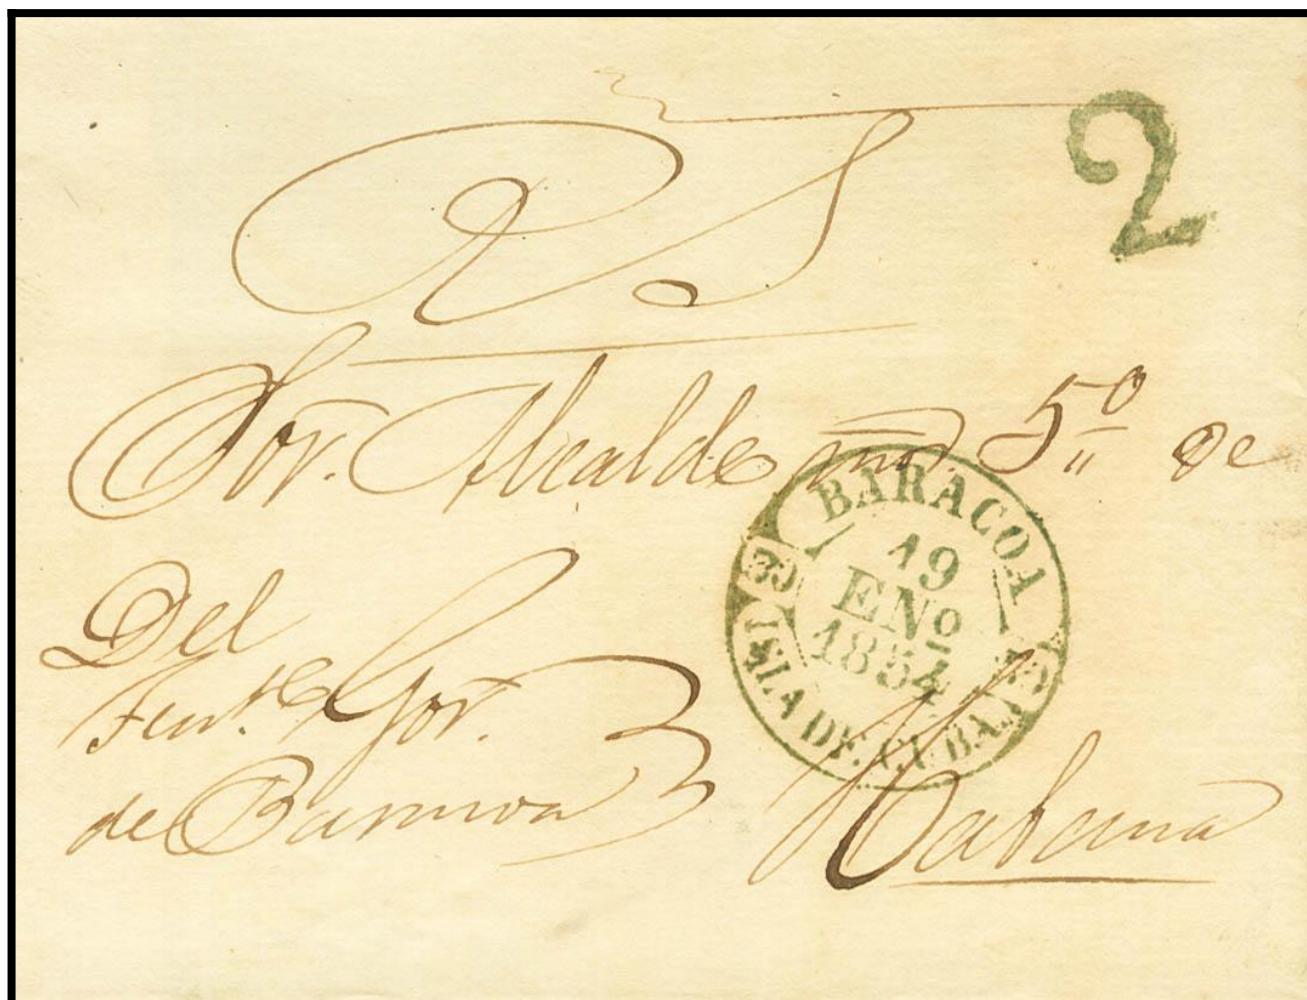 2
R S
Sor. Alcalde mor. 5º de
BARACOA
39
19
ENº
1854
ISLA DE CUBA
Del
Tente Gor.
de Baracoa
Habana